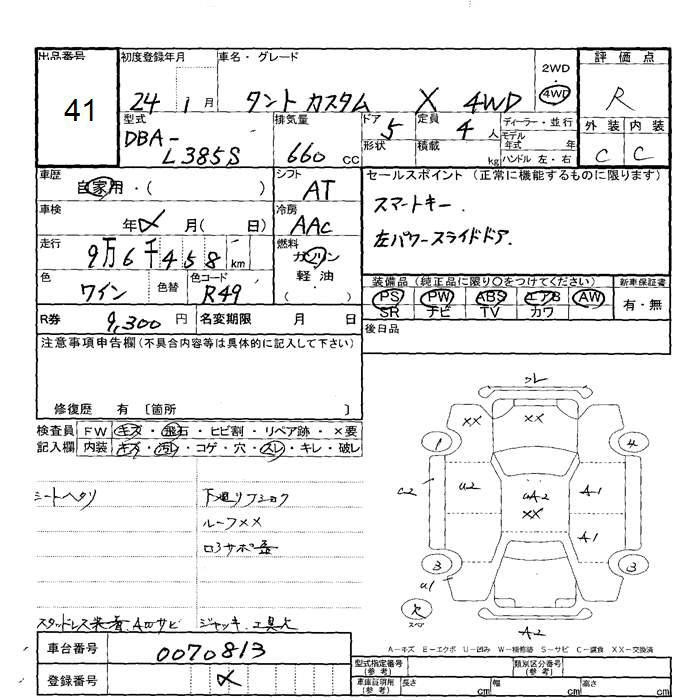 出品番号
41
初度登録年月
24 1月
車名・グレード
タント カスタム X 4WD
2WD
4WD
評価点
R
外装 内装
C C
型式
DBA-
L385S
排気量
660 CC
ドア 5
形状
定員 4 人
積載 kg
ディーラー・並行
モデル年式 年
ハンドル 左・右
車歴
自家用・( )
シフト
AT
車検
年 月( 日)
冷房
AAC
走行
9万6千458km
燃料
ガソリン
軽油
( )
色
ワイン
色替
色コード
R49
R券 9,300円
名変期限 月 日
セールスポイント(正常に機能するものに限ります)
スマートキー.
左パワースライドドア.
装備品(純正品に限り○をつけてください)
新車保証書
PS PW ABS エアB AW
SR ナビ TV カワ
有・無
後日品
注意事項申告欄(不具合内容等は具体的に記入して下さい)
修復歴 有 〔箇所 〕
検査員記入欄
FW キズ・飛石・ヒビ割・リペア跡・×要
内装 キズ・汚レ・コゲ・穴・スレ・キレ・破レ
シートヘタリ
下廻リフショク
ルーフ××
スタッドレス装着.AWサビ
ジャッキ.工具欠
××
××
1
4
C2
U2
UA2
××
A1
A1
3
3
U1
欠
スペア
A2
A-キズ E-エクボ U-凹み W-補修跡 S-サビ C-腐食 XX-交換済
車台番号
0070813
登録番号
型式指定番号(参考)
類別区分番号(参考)
車庫証明用(参考)
長さ cm
幅 cm
高さ cm